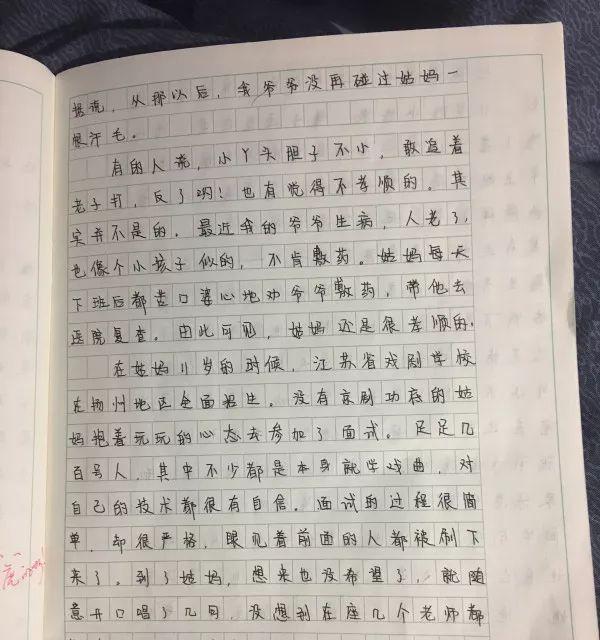 据说，从那以后，我爷爷没再碰过姑妈一
根汗毛。
有的人说，小丫头胆子不小，敢追着
老子打，反了哟！也有觉得不孝顺的。其
实并不是的，最近我的爷爷生病，人老了，
也像个小孩子似的，不肯敷药。姑妈每天
下班后都苦口婆心地劝爷爷敷药，带他去
医院复查。由此可见，姑妈还是很孝顺的。
在姑妈11岁的时候，江苏省戏剧学校
在扬州地区全面招生。没有京剧功底的姑
妈抱着玩玩的心态去参加了面试。足足几
百号人，其中不少都是本身就学戏曲，对
自己的技术都很有自信。面试的过程很简
单，却很严格，眼见着前面的人都被刷下
来了。到了姑妈，想来也没希望了，就随
意开口唱了几句，没想到在座几个老师都